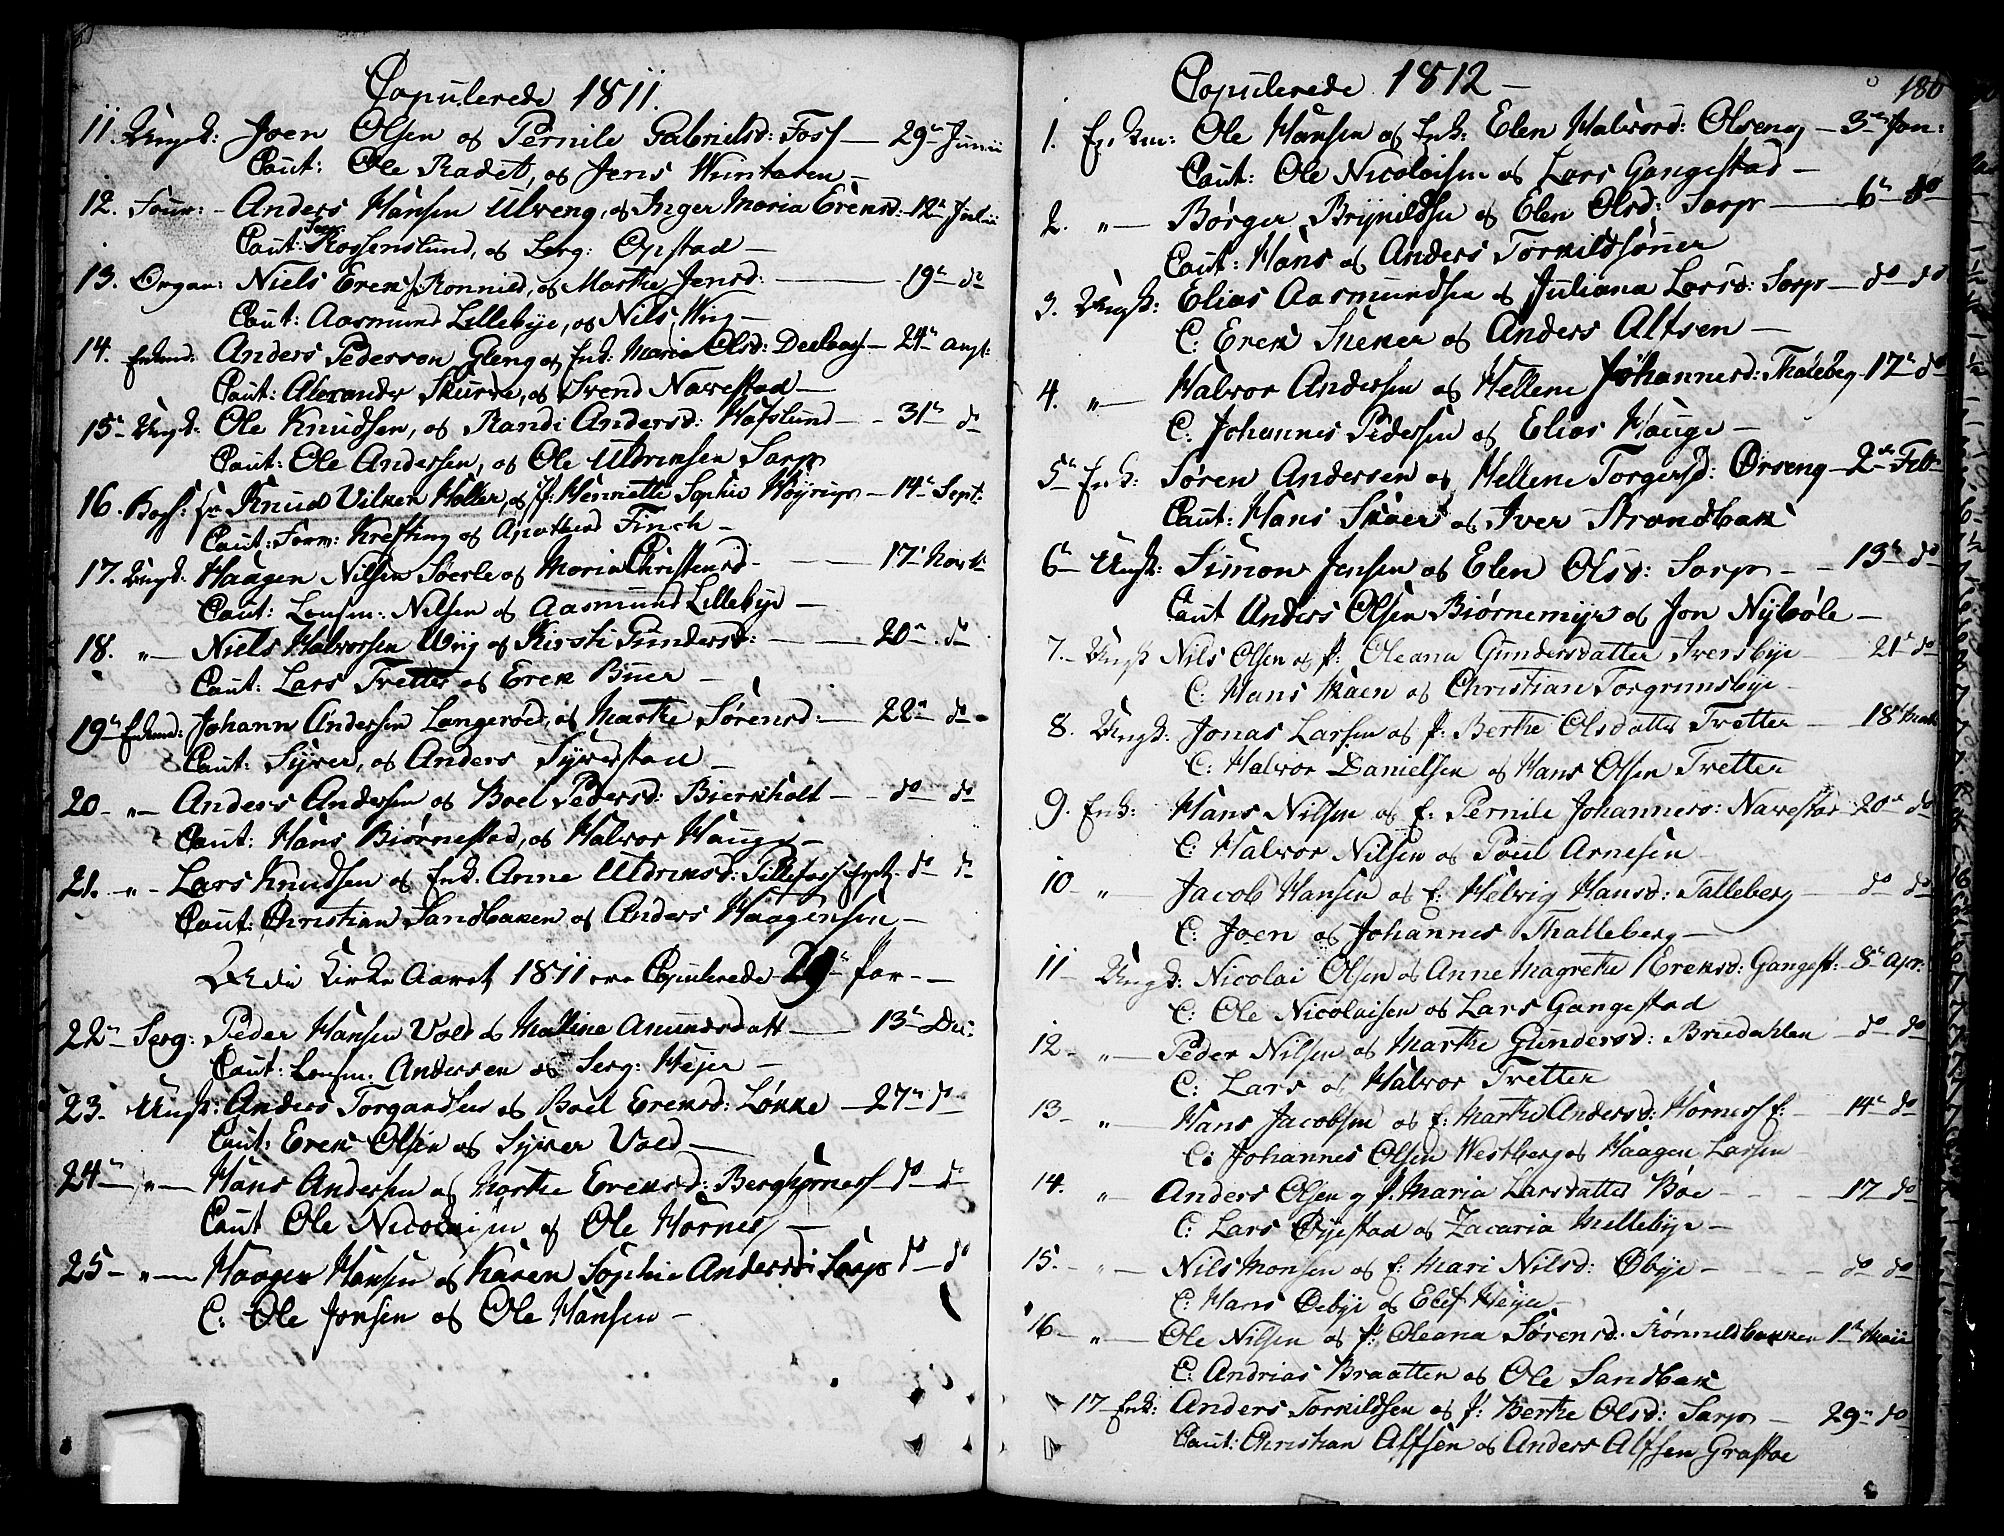 Copulerede 1811.
11. Ungk: Joen Olsen og Pernile Gabrielsd: Foss — 29de Junii
Caut: Ole Radet, og Jens Huntaten —
12. Four: - Anders Hansen Ulveng, og Inger Maria Erensd: - 12te Julii
Caut: Serg: Rossenslund, og Serg: Opstad —
13. Organ: Niels Erens: Ronnild, og Marthe Jensd: — 19de do
Caut: Aasmund Lillebye, og Nils Wiig —
14. Enkmd: Anders Pederson Gleng og Enk: Maria Olsd: Deelvag — 24de aug:
Caut: Alexander Skurve, og Svend Navestad —
15 Ungk: Ole Knudsen, og Randi Andersd: Hafslund — - 31te do
Caut: Ole Andersen, og Ole Uldriksen Sarp
16. Bogh: Sr. Knud Vilken Haller, og Jf: Henriette Sophie Høyrup — 14de Sept:
Caut: Krefting og Apotheker Finch —
17. Ungk: Haagen Nilsen Søerlie og Maria Christensd. — 17de Novb:
Caut: Lensm: Nilsen og Aasmund Lillebye —
18. „ — Niels Halvorsen Wiig og Kirsti Gundersd: — 20de do
Caut: Lars Tretter og Eren Buer —
19 Enkmd: Johann Andersen Langerød, og Marthe Sørensd: — 22de do
Caut: Syver, og Anders Syverstad —
20 - „ — Anders Andersen og Boel Pedersd: Bierkholt — do do
Caut: Hans Biørnestad, og Halvor Hauge —
21. „ - Lars Knudsen og Enk. Anne Uldriksd: do do
Caut: Christian Sandbaken og Anders Haagensen —
I Kirke Aaret 1811 ere Copulerede 29 Par —
22 Serg: Peder Hansen Vold og Malline Amundsdatt — 13de Dec:
Caut: Lensm: Andersen og Serg: Hejer —
23. Ungk: Anders Torgaardsen og Boel Erensd: Løkke — 27de do
Caut: Eren Olsen og Syver Vold —
24 „ — Hans Andersen og Marthe Erensd: Berghørness do do
Caut Ole Nicolaisen og Ole Hornes —
25 - „ — Haagen Hansen og Karen Sophie Andersd: Sarp do — do
C: Ole Jensen og Ole Hansen —
Copulerede 1812 —
186
1. Enkm: Ole Hansen og Enk: Elen Halvord: Olseng — 3de Jan:
Caut: Ole Nicolaisen og Lars Gangestad —
2. „ — Børger Brynildsen og Elen Olsd: Sarp — 6te do
Caut: Hans og Anders Torkildsønner
3. Ungk: Elias Aasmundsen og Juliana Larsd: Sarp — do do
C: Eren Skeker og Anders Altsen —
4. „ — Halvor Andersen og Hellene Johannesd: Thalebeg — 17de do
C. Johannes Pedersen og Elias Hauge —
5 Enk: Søren Andersen og Hellene Torgersd: Ørseng — 2de Feb
Caut: Hans Skaer og Iver Strandbak
6 Ungk: Simon Jensen og Elen Olsd: Sarp - - 13de do
Caut Anders Olsen Biørnemyr og Jon Nybøle —
7. - Ungk Nils Olsen og p: Oleana Gundersdatter Iversbye — 21de do
C: Hans Skaen og Christian Torgrimsbye —
8. Ungk: Jonas Larsen og p: Berthe Olsdatter Tretter — 18de Mart
C: Halvor Danielsen og Hans Olsen Tretter
9. Enk: Hans Nilsen og E: Pernile Johannesd: Navestad - 20de do
C: Halvor Nilsen og Poul Arnesen —
10 - „ — Jacob Hansen og E: Helvig Hansd: Talleberg — do do
C: Joen og Johannes Thalleberg —
11 - Ungk: Nicolai Olsen og Anne Magrethe Erensd: Gangest: - 8de Apr:
C: Ole Nicolaisen og Lars Gangestad
12 - „ — Peder Nilsen og Marthe Gundersd: Bruedahlen — do do
C: Lars og Halvor Tretter
13 - „ Hans Jacobsen og E: Marthe Andersd: Horness E: — 14de do
C: Johannes Olsen Westberg og Haagen Larsen —
14. „ Anders Olsen og p: Maria Larsdatter Boe — - - 17 do
C: Lars Øyestad og Zacaria Mellebye —
15. - „ — Nils Monsen og E: Mari Nilsd: Øbye — - - do do
C: Hans Oebye og Elef Heyer —
16 - „ — Ole Nilsen og p: Oleana Sørensd: Rønnildbakken 1te Maii
C: Andrias Braatten og Ole Sandbak
17 - Enk: Anders Torkildsen og p: Berthe Olsd: Sarp — 29de do
Caut: Christian Alfsen og Anders Alfsen Grastoe